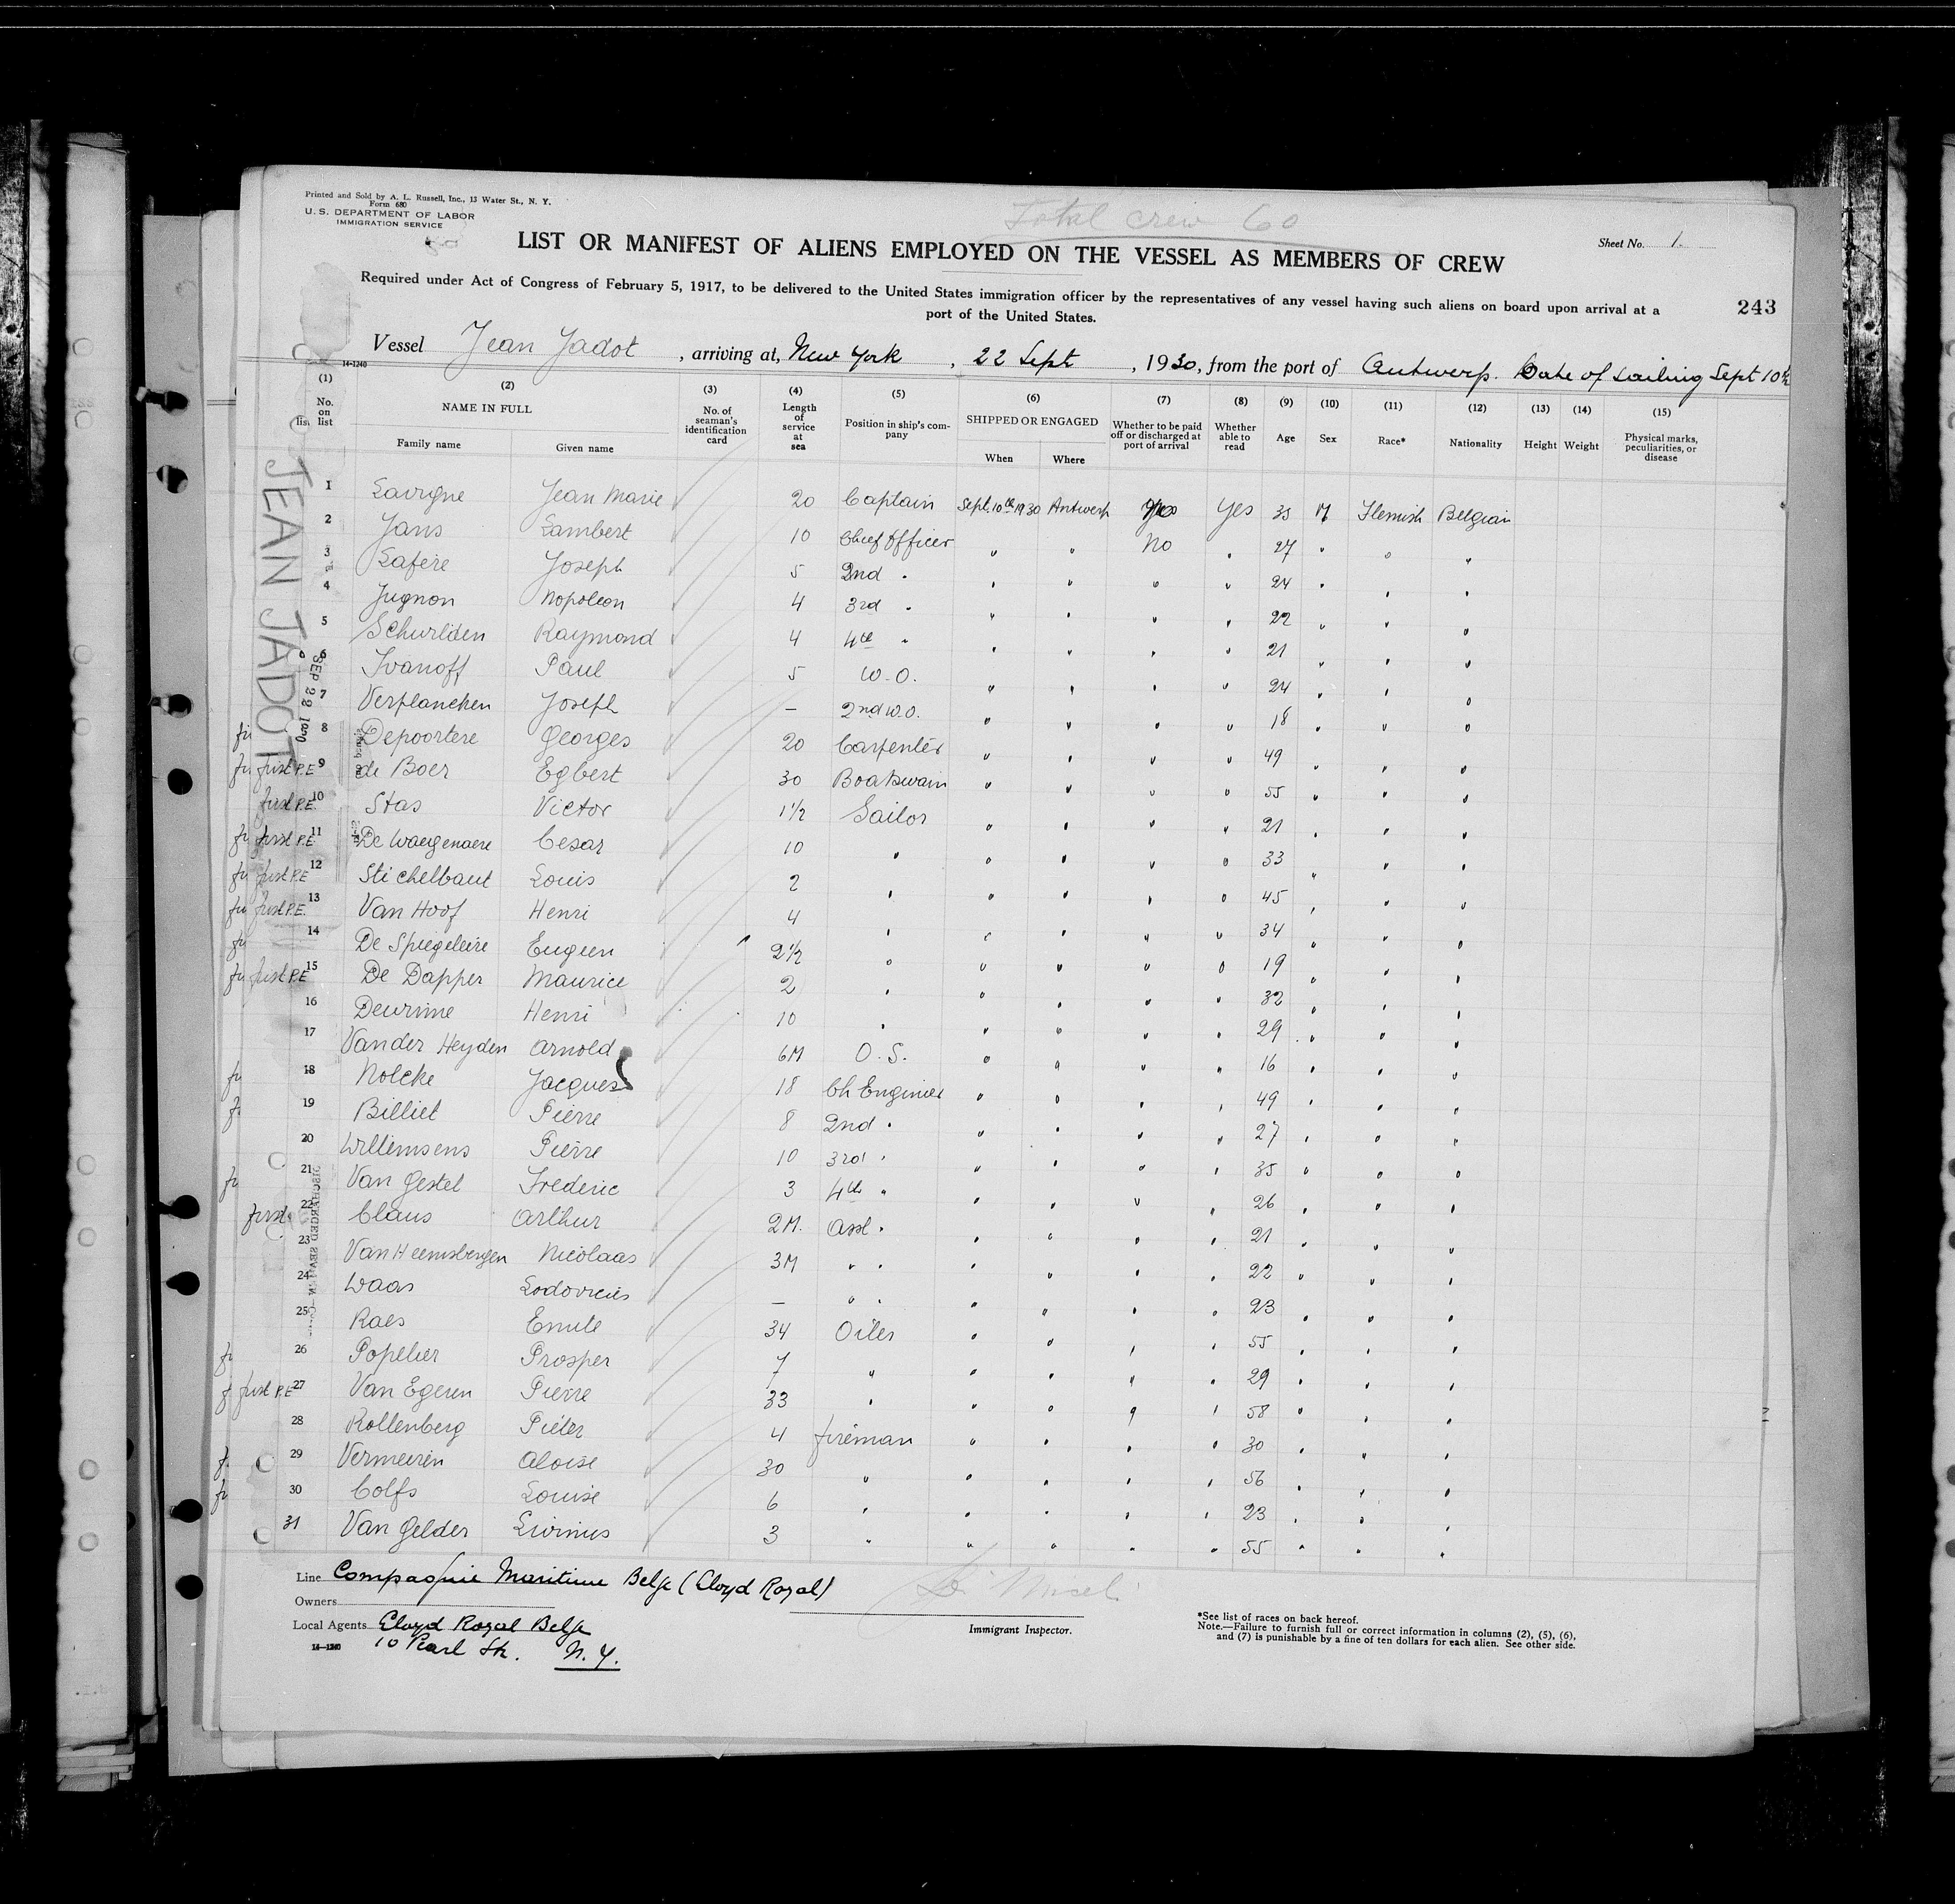 Printed and Sold by A. L. Russell, Inc., 13 Water St., N. Y.
Form 680
U. S. DEPARTMENT OF LABOR
IMMIGRATION SERVICE
Total crew 60
Sheet No. 1.
LIST OR MANIFEST OF ALIENS EMPLOYED ON THE VESSEL AS MEMBERS OF CREW
Required under Act of Congress of February 5, 1917, to be delivered to the United States immigration officer by the representatives of any vessel having such aliens on board upon arrival at a
port of the United States.
243
Vessel Jean Jadot, arriving at, New York, 22 Sept, 1930, from the port of Antwerp. Date of sailing Sept 10th
14-1240
(1) (2) (3) (4) (5) (6) (7) (8) (9) (10) (11) (12) (13) (14) (15)
No. on list NAME IN FULL No. of seaman's identification card Length of service at sea Position in ship's company SHIPPED OR ENGAGED Whether to be paid off or discharged at port of arrival Whether able to read Age Sex Race* Nationality Height Weight Physical marks, peculiarities, or disease
Family name Given name When Where
JEAN JADOT
SEP 22 1930
1 Lavigne Jean Marie 20 Captain Sept. 10th 1930 Antwerp Yes 35 M Flemish Belgian
2 Jans Lambert 10 Chief Officer " " No " 27 " " "
3 Lafere Joseph 5 2nd " " " " " 24 " " "
4 Jugnon Nopoleon 4 3rd " " " " " 22 " " "
5 Schurliden Raymond 4 4th " " " " " 21 " " "
6 Ivanoff Paul 5 W.O. " " " " 24 " " "
7 Verplancken Joseph – 2nd W.O. " " " " 18 " " "
8 Depoortere Georges 20 Carpenter " " " " 49 " " "
first P.E. 9 de Boer Egbert 30 Boatswain " " " " 55 " " "
first P.E. 10 Stas Victor 1½ Sailor " " " " 21 " " "
first P.E. 11 De Waegenaere Cesar 10 " " " " " 33 " " "
first P.E. 12 Stichelbaut Louis 2 " " " " " 45 " " "
first P.E. 13 Van Hoof Henri 4 " " " " " 34 " " "
14 De Spiegeleire Eugeen 2½ " " " " " 19 " " "
first P.E. 15 De Dapper Maurice 2 " " " " " 32 " " "
16 Deurinne Henri 10 " " " " " 29 " " "
17 Vander Heyden Arnold 6M O.S. " " " " 16 " " "
18 Nolcke Jacques 18 Ch Engineer " " " " 49 " " "
19 Billiet Pierre 8 2nd " " " " " 27 " " "
20 Willemsens Pierre 10 3rd " " " " " 35 " " "
21 Van Gestel Frederic 3 4th " " " " " 26 " " "
first 22 Claus Arthur 2M. Asst " " " " " 21 " " "
23 Van Heemsbergen Nicolaas 3M " " " " " " 22 " " "
24 Waas Lodovicus – " " " " " " 23 " " "
25 Raes Emile 34 Oiler " " " " 55 " " "
26 Popelier Prosper 7 " " " " " 29 " " "
first P.E 27 Van Egeren Pierre 33 " " " " " 58 " " "
28 Rollenberg Pieter 4 fireman " " " " 30 " " "
29 Vermeiren Aloise 30 " " " " " 56 " " "
30 Colfs Louise 6 " " " " " 23 " " "
31 Van Gelder Livinus 3 " " " " " 55 " " "
Line Compagnie Maritime Belge (Lloyd Royal)
Owners
Local Agents Lloyd Royal Belge
10 Pearl Str. N.Y.
14-1240
Immigrant Inspector.
*See list of races on back hereof.
Note.—Failure to furnish full or correct information in columns (2), (5), (6),
and (7) is punishable by a fine of ten dollars for each alien. See other side.